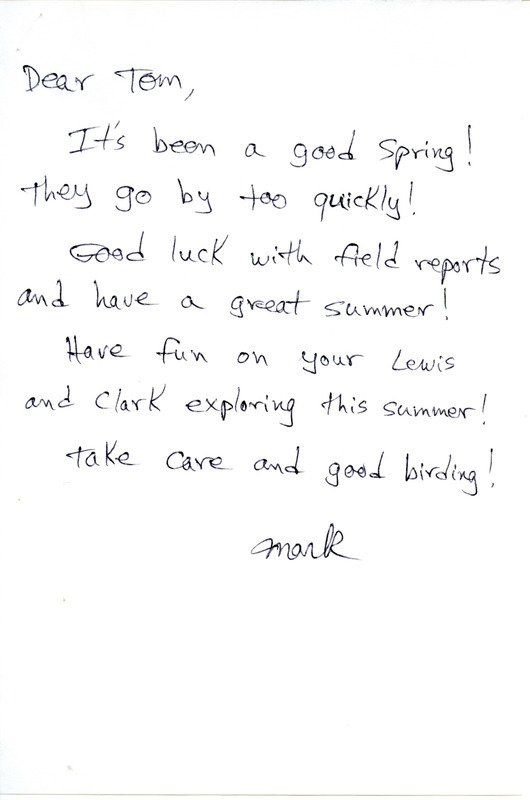 Dear Tom,
It's been a good Spring!
They go by too quickly!
Good luck with field reports
and have a great summer!
Have fun on your Lewis
and Clark exploring this summer!
Take care and good birding!
Mark